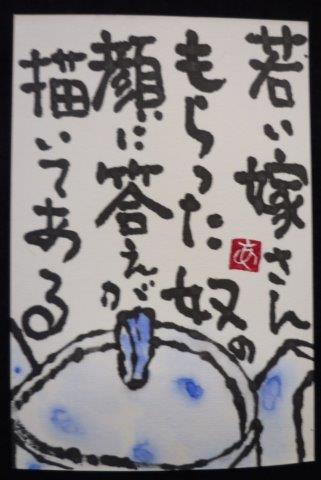 若い嫁さん
もらった奴の
顔に答えが
描いてある
あ